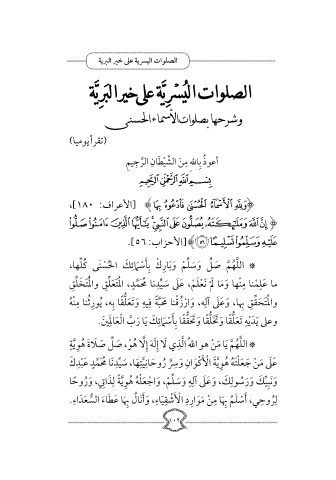 الصلوات اليسرية على خير البرية
الصلوات اليُسْرِيَّة على خير البَرِيَّة
وشرحها بصلوات الأسماء الحسنى
(تقرأ يوميا)
أعوذُ بِالله مِنَ الشَّيْطَانِ الرَّجِيمِ
بِسْمِ اللَّهِ الرَّحْمَنِ الرَّحِيمِ
﴿وَلِلَّهِ ٱلْأَسْمَآءُ ٱلْحُسْنَىٰ فَٱدْعُوهُ بِهَا﴾ [الأعراف: ١٨٠]،
﴿إِنَّ ٱللَّهَ وَمَلَٰٓئِكَتَهُۥ يُصَلُّونَ عَلَى ٱلنَّبِيِّ يَٰٓأَيُّهَا ٱلَّذِينَ ءَامَنُواْ صَلُّواْ
عَلَيْهِ وَسَلِّمُواْ تَسْلِيمًا ۝٥٦﴾ [الأحزاب: ٥٦].
* اللَّهُمَّ صَلِّ وَسَلِّمْ وَبَارِكْ بِأَسْمَائِكَ الحُسْنَى كُلِّهَا،
ما عَلِمْنا مِنْهَا وَمَا لَمْ نَعْلَمْ، عَلَى سَيِّدِنا مُحَمَّدٍ، المُتَعَلِّقِ والمُتَخَلِّقِ
والمُتَحَقِّقِ بِها، وَعَلَى آلِهِ، وَارْزُقْنا مَحَبَّةً فِيهِ وَتَعَلُّقًا بِهِ، يُورِثُنا مِنْهُ
وعلى يَدَيْهِ تَعَلُّقًا وَتَخَلُّقًا وَتَحَقُّقًا بِأَسْمَائِكَ يَا رَبَّ الْعَالَمِينَ.
* اللَّهُمَّ يَا مَنْ هو اللهُ الَّذِي لَا إِلَهَ إِلَّا هُوَ، صَلِّ صَلَاةَ هُوِيَّةٍ
عَلَى مَنْ جَعَلْتَهُ هُوِيَّةَ الأَكْوَانِ وَسِرَّ رُوحَانِيَّتِهَا، سَيِّدِنَا مُحَمَّدٍ عَبْدِكَ
وَنَبِيِّكَ وَرَسُولِكَ، وَعَلَى آلِهِ وَسَلِّمْ، وَاجْعَلْهُ هُوِيَّةً لِذَاتِي، وَرُوحًا
لِرُوحِي، أَسْلَمُ بِهَا مِنْ مَوَارِدِ الأَشْقِيَاءِ، وَأَنَالُ بِهَا عَطَاءَ السُّعَدَاءِ.
١٠٢